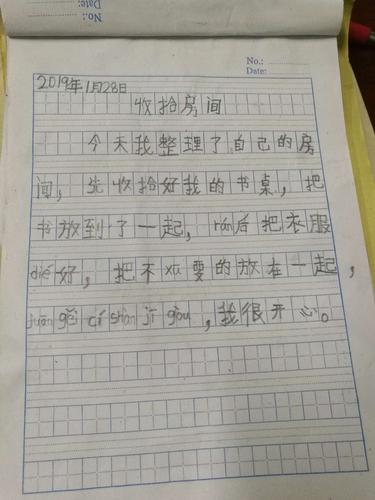 Date:
No.:
No.:
Date:
2019年1月28日
收拾房间
今天我整理了自己的房
间，先收拾好我的书桌，把
书放到了一起，rán后把衣服
dié好，把不xū要的放在一起，
juān gěi cí shàn jī gòu，我很开心。